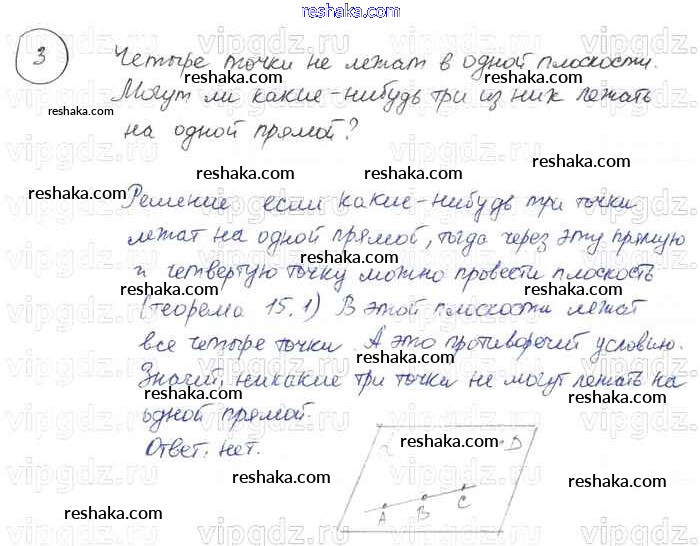 reshaka.com
3
Четыре точки не лежат в одной плоскости.
Могут ли какие-нибудь три из них лежать
на одной прямой?
Решение если какие-нибудь три точки
лежат на одной прямой, тогда через эту прямую
и четвертую точку можно провести плоскость
(теорема 15.1) В этой плоскости лежат
все четыре точки. А это противоречит условию.
Значит, никакие три точки не могут лежать на
одной прямой.
Ответ: нет.
D
A B C